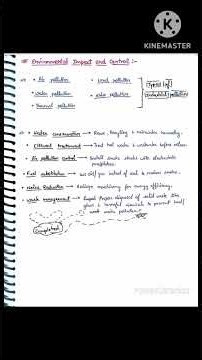 KINEMASTER
Environmental Impact and Control :-
• Air pollution • Land pollution
• Water pollution • Noise pollution
• Thermal pollution
Types of
pollution
• Water conservation → Reuse, Recycling & rainwater harvesting.
• Effluent treatment → Treat hot water & wastewater before release.
• Air pollution control → Install smoke stacks with electrostatic
precipitators.
• Fuel substitution → use oil/gas instead of coal to reduce smoke.
• Noise Reduction → machinery for energy efficiency.
• Waste management → Proper disposal of solid waste like
glass & harmful chemicals to prevent land/
water pollution
Completed